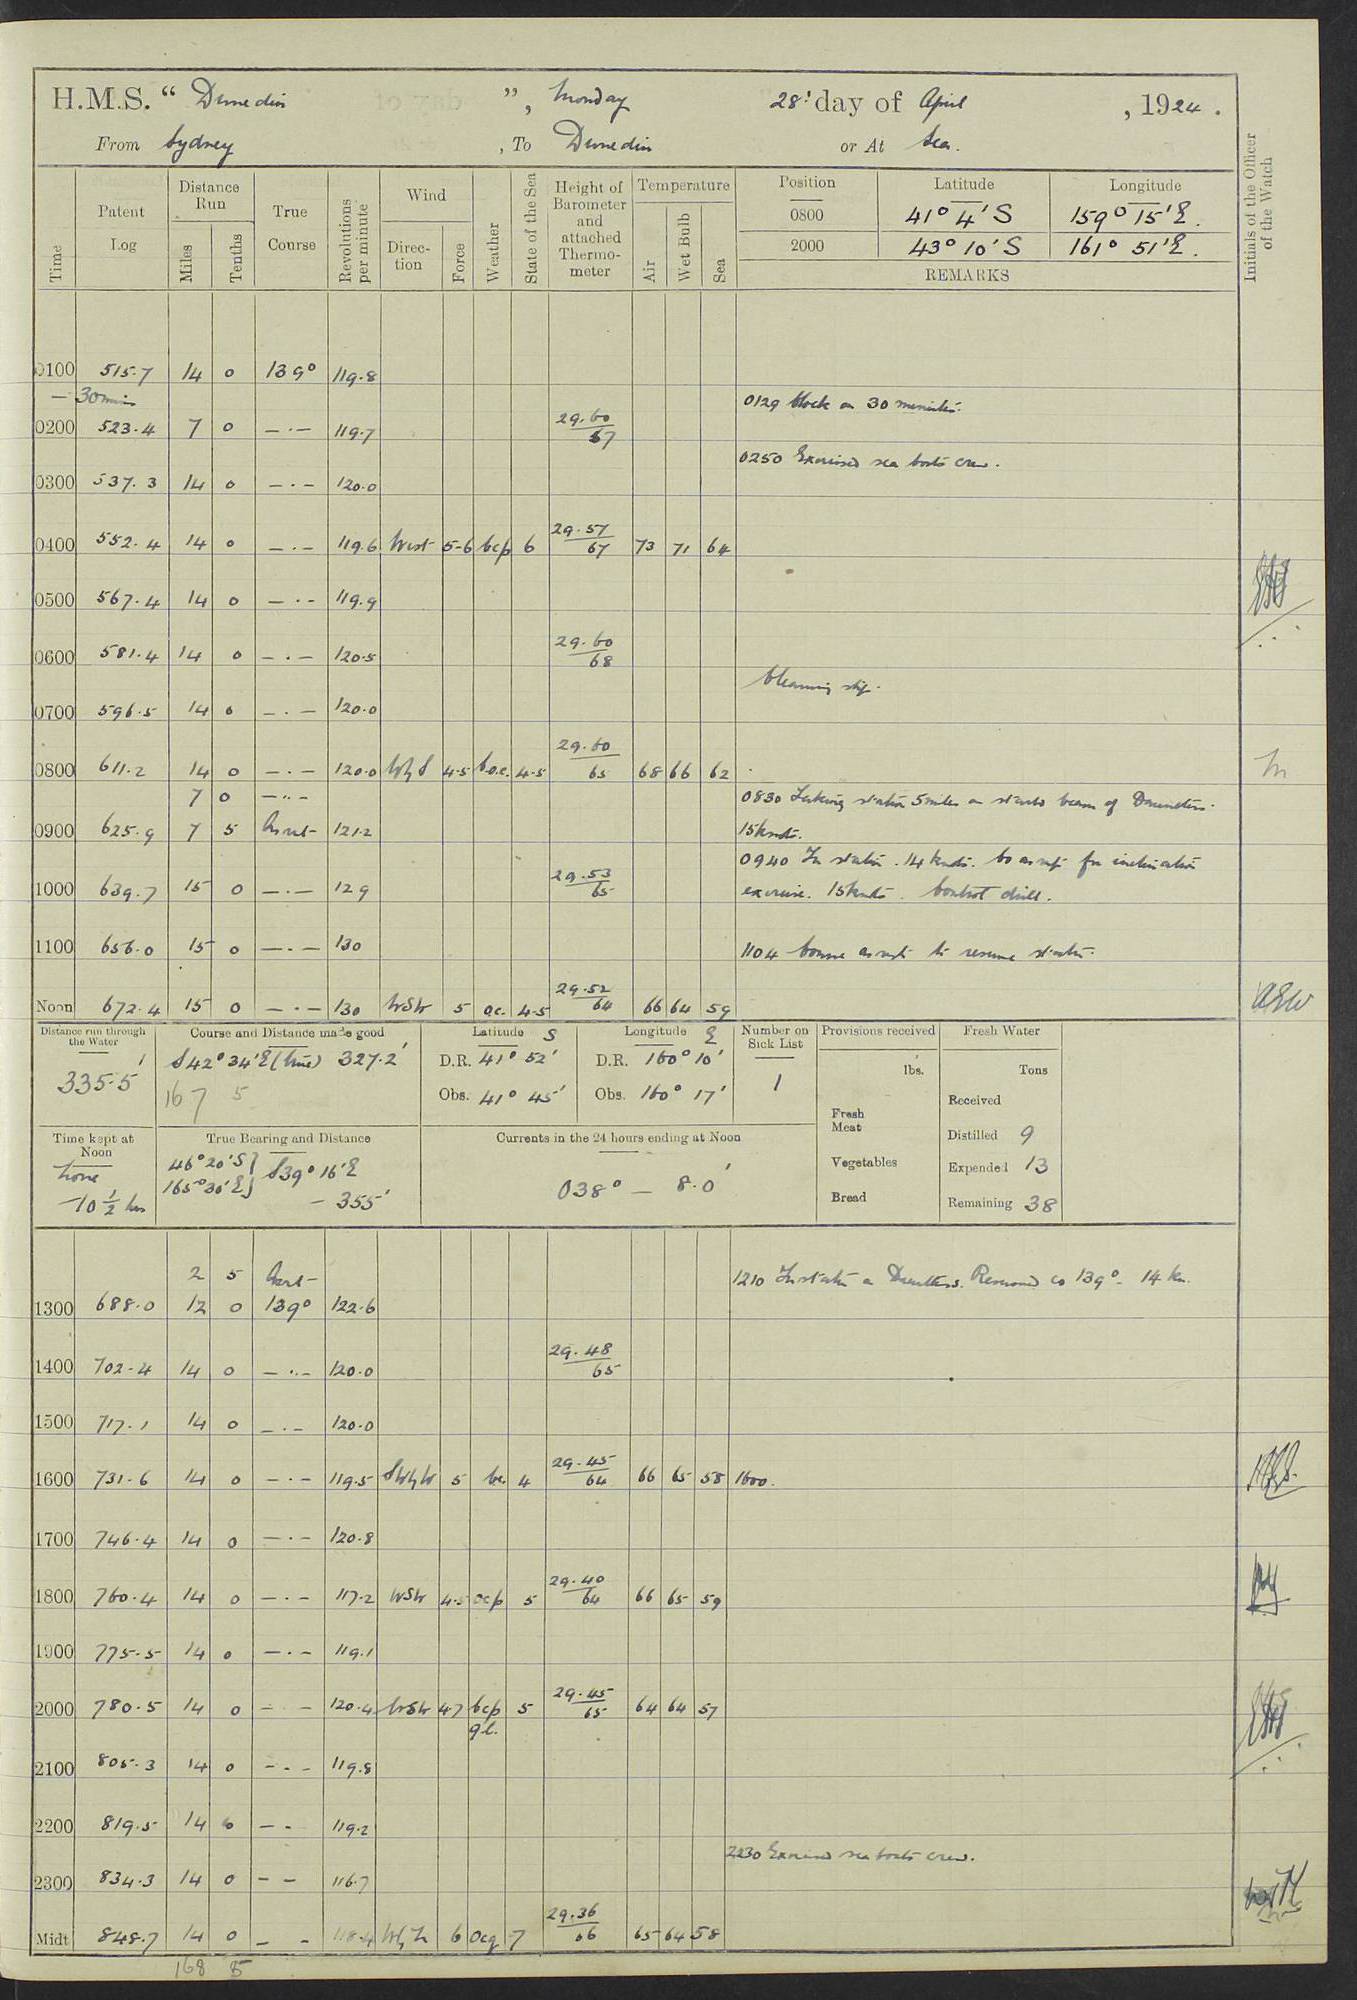 H.M.S. “ Dunedin ”, Monday 28th day of April , 1924 .
From Sydney , To Dunedin or At Sea.
Time
Patent Log
Distance Run
Miles
Tenths
True Course
Revolutions per minute
Wind
Direc-tion
Force
Weather
State of the Sea
Height of Barometer and attached Thermo-meter
Temperature
Air
Wet Bulb
Sea
Position Latitude Longitude
0800 41° 4' S 159° 15' E.
2000 43° 10' S 161° 51' E.
REMARKS
Initials of the Officer of the Watch
0100 515.7 14 0 139° 119.8
— 30 mins
0129 Clock on 30 minutes.
0200 523.4 7 0 —·— 119.7 29.60 67
0250 Exercised sea boats crew.
0300 537.3 14 0 —·— 120.0
0400 552.4 14 0 —·— 119.6 West 5-6 bcp 6 29.57 67 73 71 64
0500 567.4 14 0 —·— 119.9
0600 581.4 14 0 —·— 120.5 29.60 68
Cleaning ship.
0700 596.5 14 0 —·— 120.0
0800 611.2 14 0 —·— 120.0 WbyS 4-5 b.c. 4-5 29.60 65 68 66 62
7 0 —·—
0830 Taking station 5 miles on starbd beam of Dauntless.
0900 625.9 7 5 As req- 121.2 15 knots.
0940 In station. 14 knots. Co as req for inclination
1000 639.7 15 0 —·— 129 29.53 65 exercise. 15 knots. Control drill.
1100 656.0 15 0 —·— 130 1104 Course as req to resume station.
Noon 672.4 15 0 —·— 130 WSW 5 oc. 4-5 29.52 64 66 64 59
Distance run through the Water
335.5'
Course and Distance made good
S 42° 34' E (true) 327.2'
167 5
Latitude S
D.R. 41° 52'
Obs. 41° 45'
Longitude E
D.R. 160° 10'
Obs. 160° 17'
Number on Sick List
1
Provisions received
lbs.
Fresh Meat
Vegetables
Bread
Fresh Water
Tons
Received
Distilled 9
Expended 13
Remaining 38
Time kept at Noon
Zone
-10 1/2 hrs
True Bearing and Distance
46° 20' S }
165° 30' E } S 39° 16' E
— 355'
Currents in the 24 hours ending at Noon
038° — 8.0'
2 5 As req-
1210 In station on Dauntless. Resumed co 139°. 14 kn.
1300 688.0 12 0 139° 122.6
1400 702.4 14 0 —·— 120.0 29.48 65
1500 717.1 14 0 —·— 120.0
1600 731.6 14 0 —·— 119.5 SWbyW 5 bc. 4 29.45 64 66 65 58 1600.
1700 746.4 14 0 —·— 120.8
1800 760.4 14 0 —·— 117.2 WSW 4-5 ocp 5 29.40 64 66 65 59
1900 775.5 14 0 —·— 119.1
2000 780.5 14 0 —·— 120.4 WSW 4-7 bcp 5 29.45 65 64 64 57
ql.
2100 805.3 14 0 —·— 119.8
2200 819.5 14 0 —·— 119.2
2230 Exercised sea boats crew.
2300 834.3 14 0 — — 116.7
Midt 848.7 14 0 — — 118.4 6 ocq 7 29.36 66 65 64 58
168 5